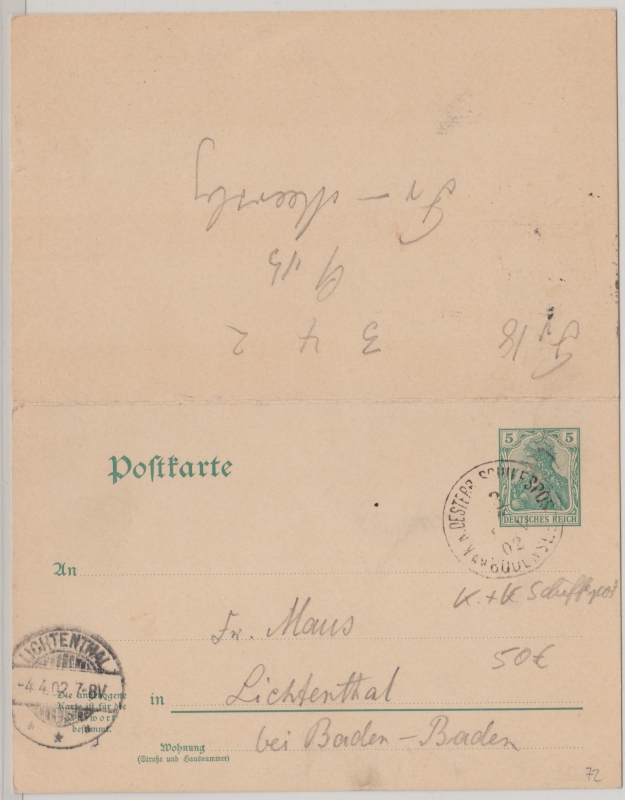 Fr 18 3 4 2
5 5
DEUTSCHES REICH
Postkarte
K.K. OESTERR. SCHIFFSPOST
02
BODENSEE
An
K. + K. Schiffspost
Fr. Maus
50€
LICHTENTHAL
-4.4.02.7-8V.
Die anhängene
Karte ist für die
Antwort
bestimmt.
in Lichtenthal
bei Baden-Baden
Wohnung
(Straße und Hausnummer)
72